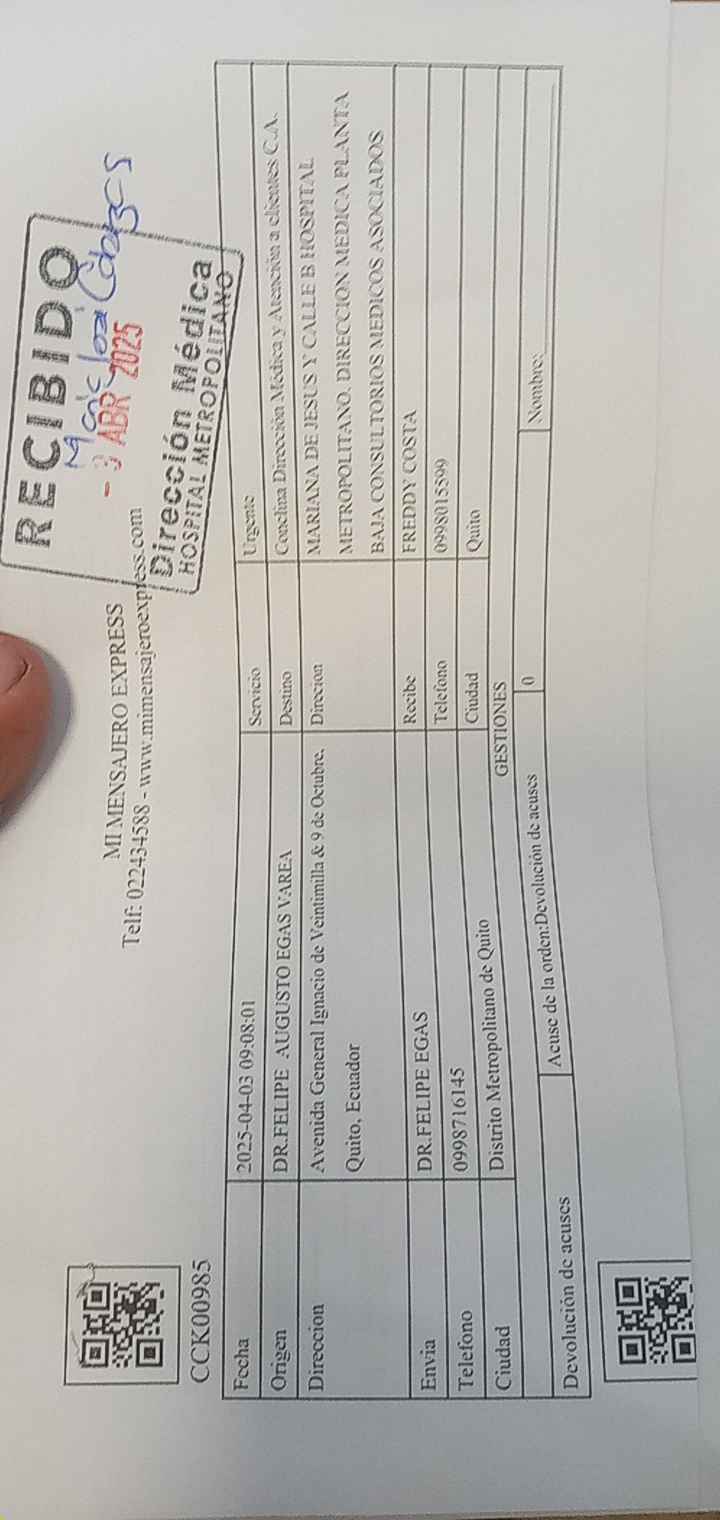 RECIBIDO
- 3 ABR 2025
Dirección Médica
HOSPITAL METROPOLITANO
MI MENSAJERO EXPRESS
Telf: 022434588 - www.mimensajeroexpress.com
CCK00985
Fecha 2025-04-03 09:08:01 Servicio Urgente
Origen DR.FELIPE AUGUSTO EGAS VAREA Destino Conclina Dirección Médica y Atención a clientes C.A.
Direccion Avenida General Ignacio de Veintimilla & 9 de Octubre, Direcion MARIANA DE JESUS Y CALLE B HOSPITAL
Quito, Ecuador METROPOLITANO. DIRECCION MEDICA PLANTA
BAJA CONSULTORIOS MEDICOS ASOCIADOS
Envia DR.FELIPE EGAS Recibe FREDDY COSTA
Telefono 0998716145 Telefono 0998015599
Ciudad Distrito Metropolitano de Quito Ciudad Quito
GESTIONES
Devolución de acuses Acuse de la orden:Devolución de acuses 0 Nombre: